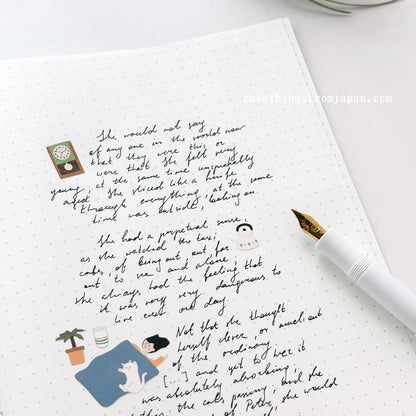 cutethingsfromjapan.com
She would not say
of any one in the world now
that they were this or
were that. She felt very
young; at the same time unspeakably
aged. She sliced like a knife
through everything; at the same
time was outside, looking on.
She had a perpetual sense,
as she watched the taxi
cabs, of being out, out, far
out to sea and alone;
she always had the feeling that
it was very, very dangerous to
live even one day.
Not that she thought
herself clever, or much out
of the ordinary.
[...] and yet to her it
was absolutely absorbing;
all this; the cabs passing; and she
of Peter, she would